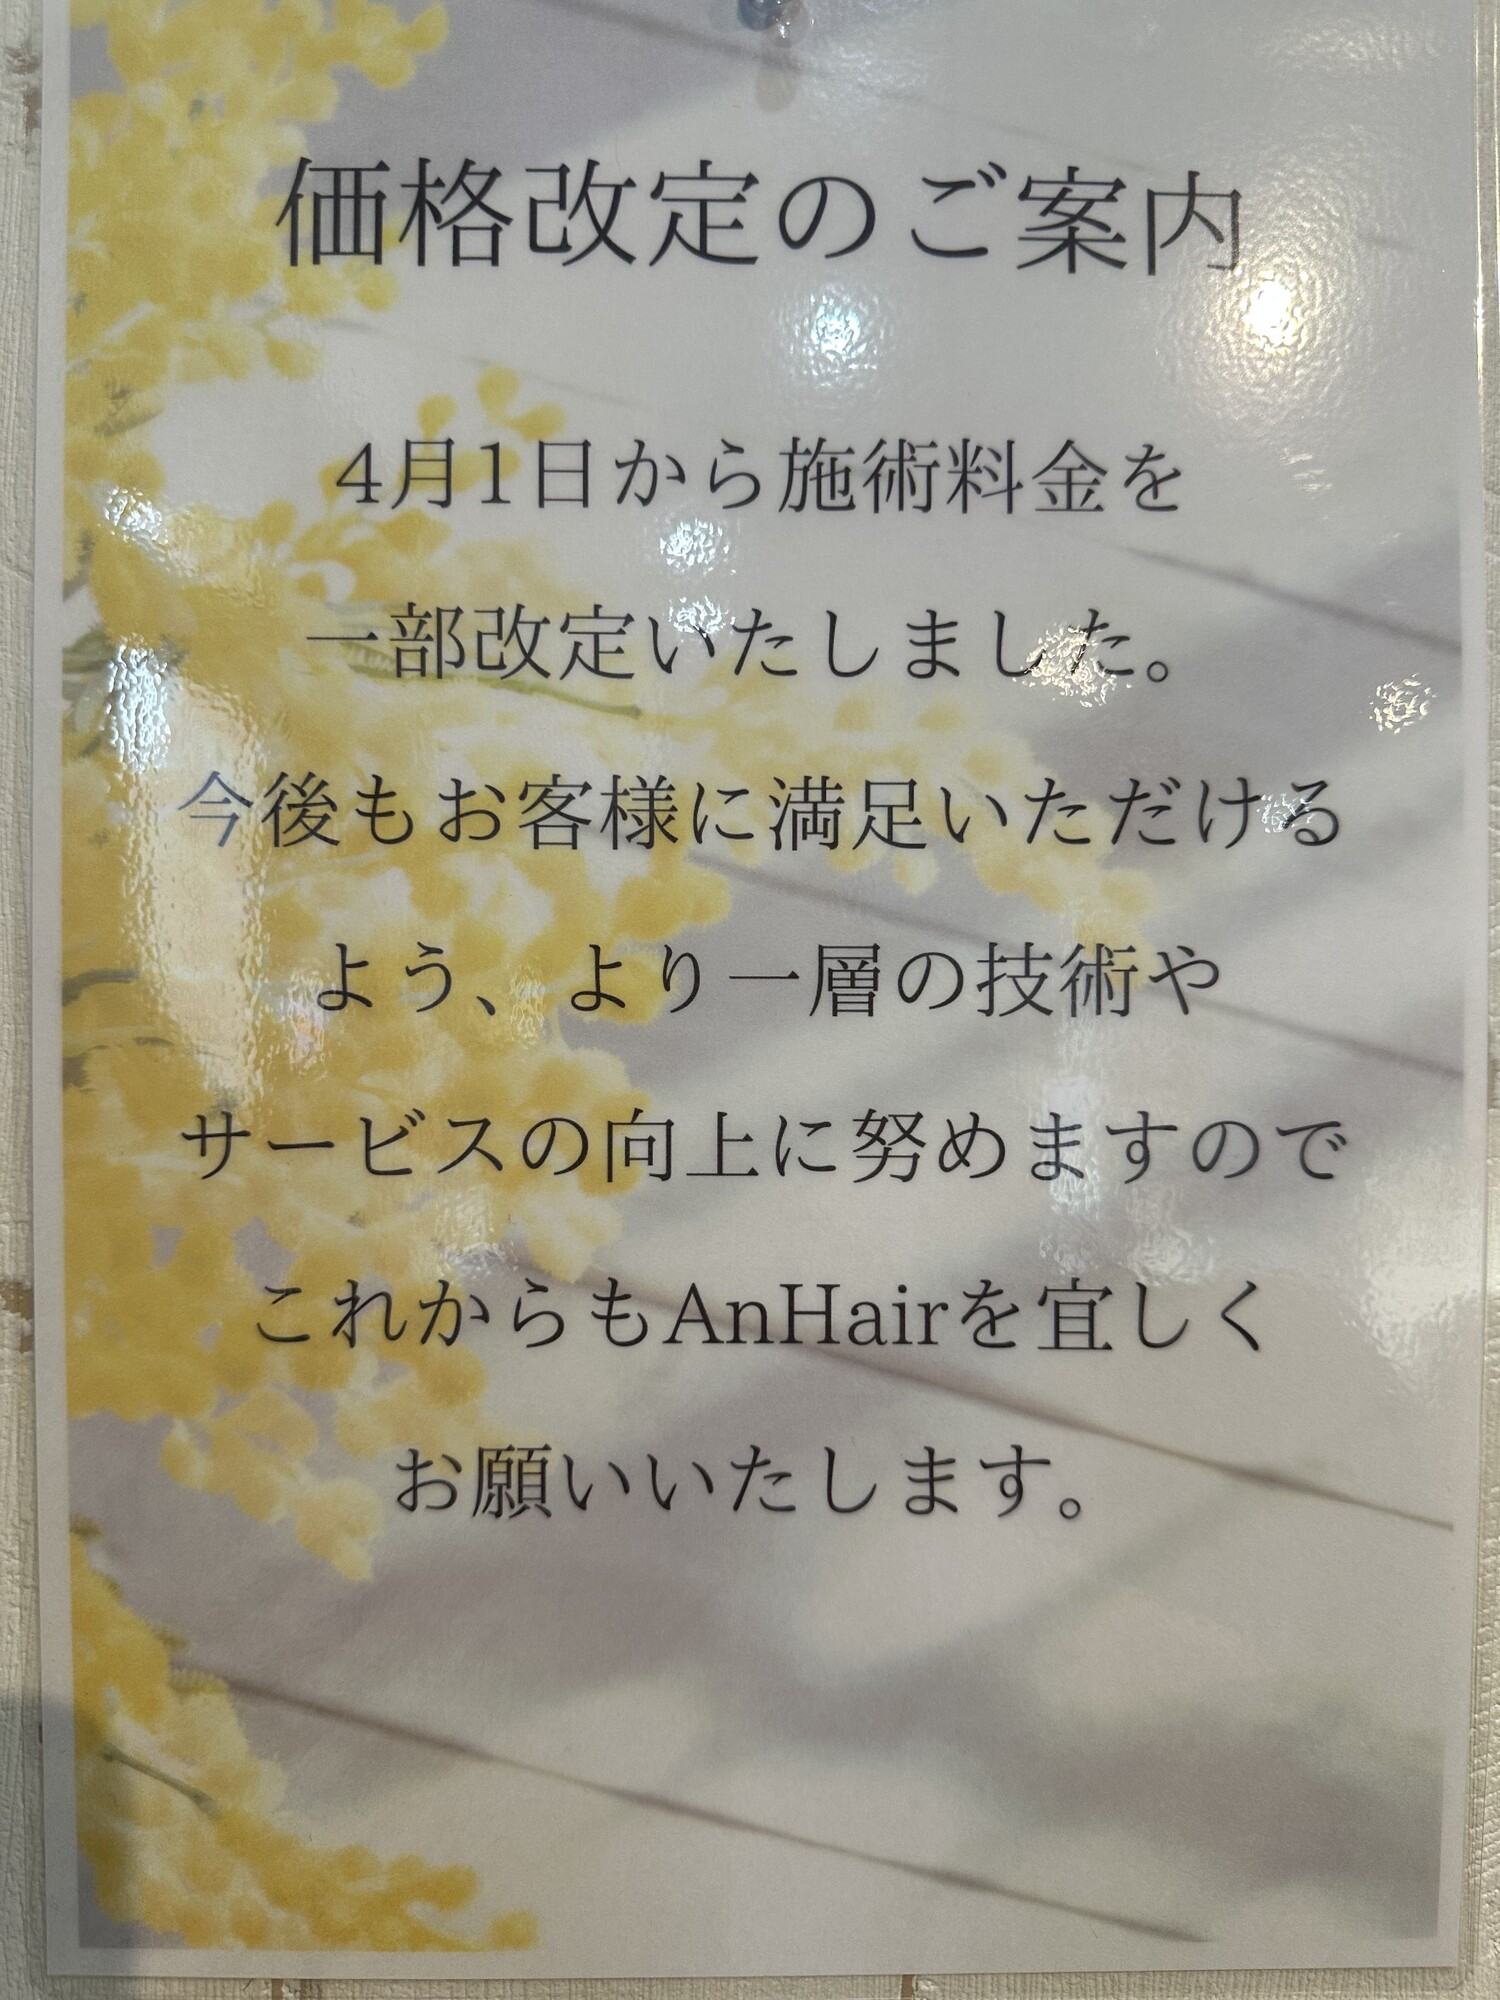 価格改定のご案内
4月1日から施術料金を
一部改定いたしました。
今後もお客様に満足いただける
よう、より一層の技術や
サービスの向上に努めますので
これからもAnHairを宜しく
お願いいたします。